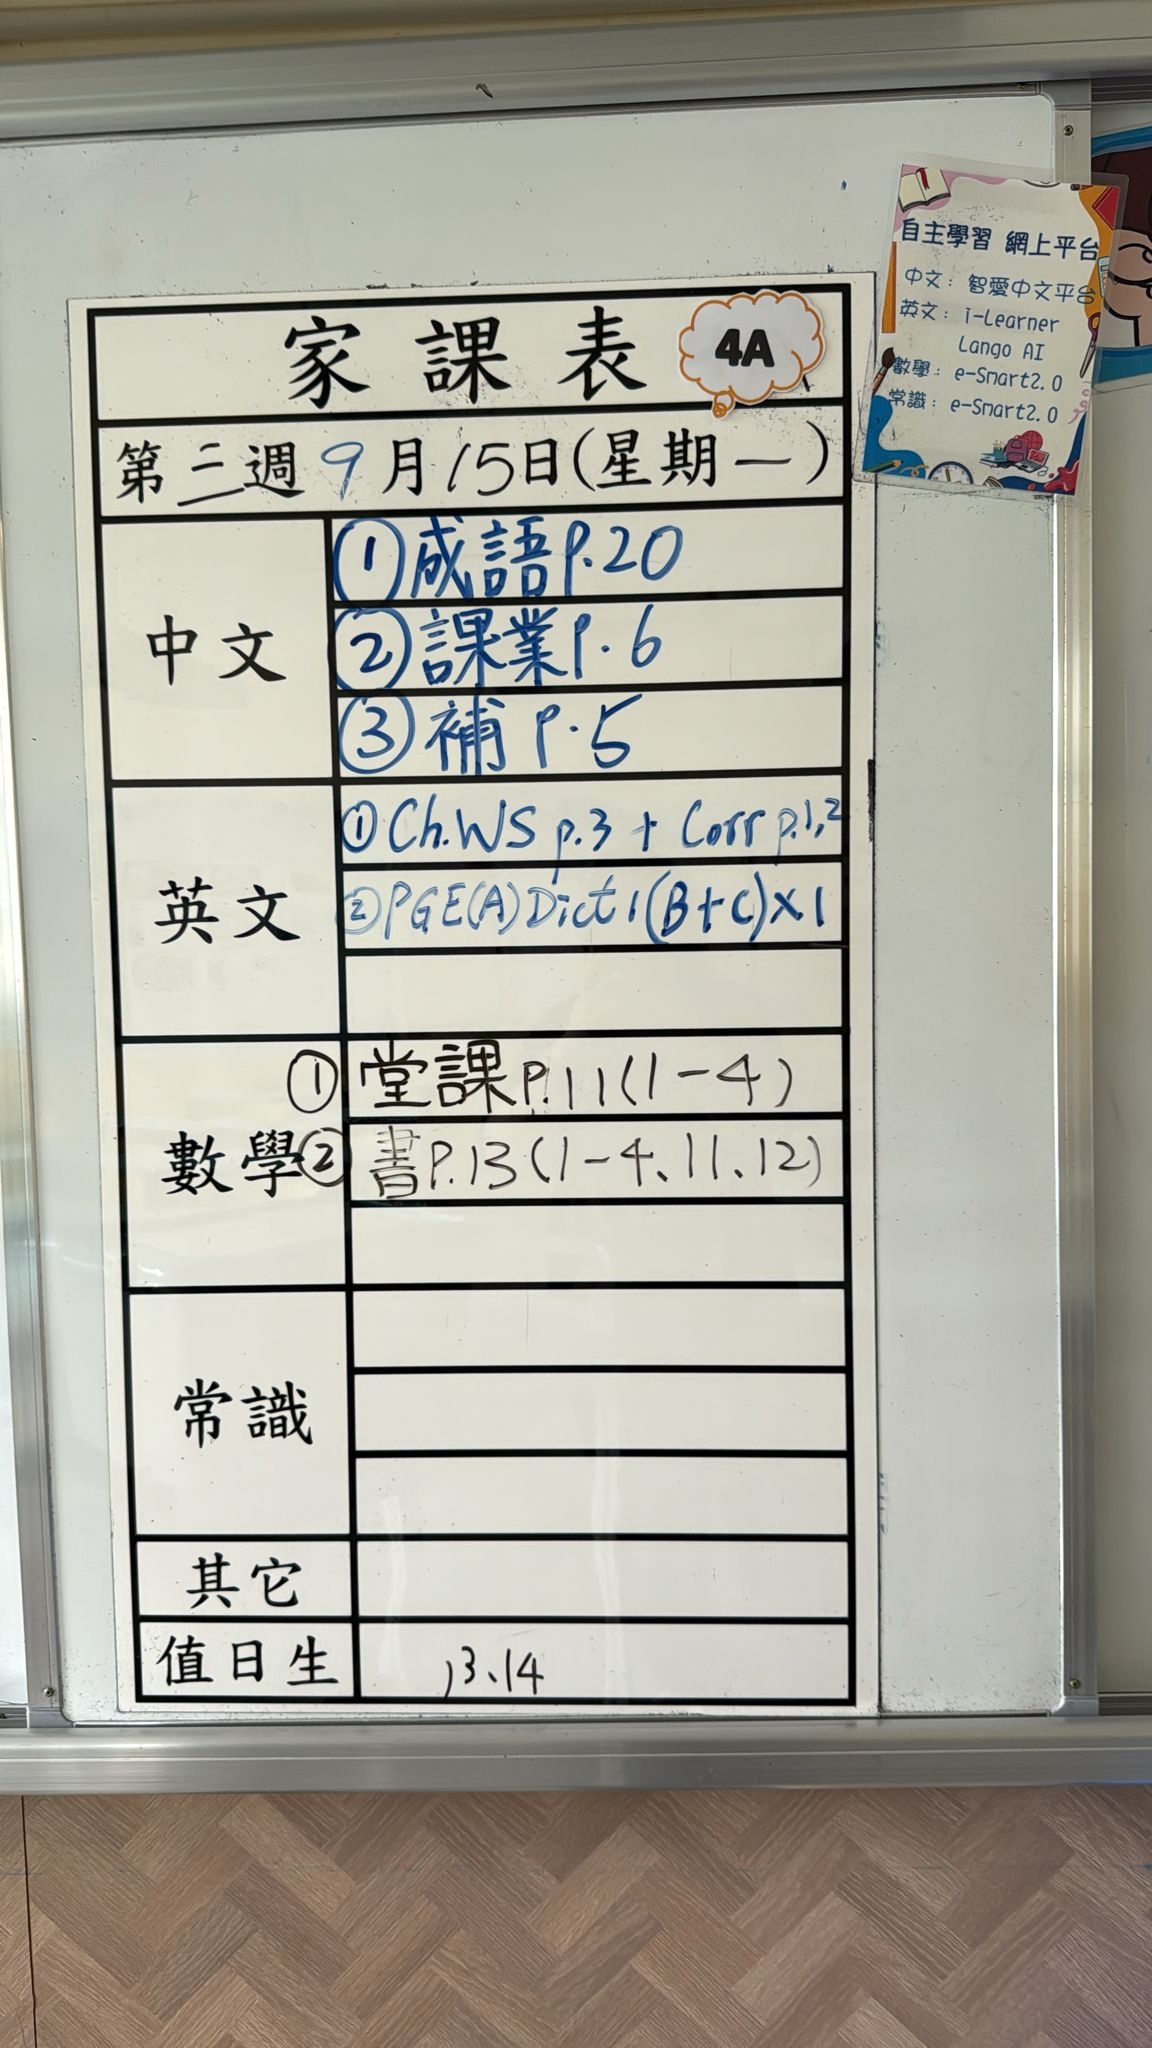 家課表
4A
第三週 9月15日(星期一)
中文
①成語P.20
②課業P.6
③補 P.5
英文
①Ch.WS p.3 + Corr p.1,2
②PGE(A)Dict1(B+C)×1
數學
①堂課P.11(1-4)
②書P.13(1-4、11、12)
常識
其它
值日生
13、14
自主學習 網上平台
中文：智愛中文平台
英文：i-Learner
Lango AI
數學：e-Smart2.0
常識：e-Smart2.0